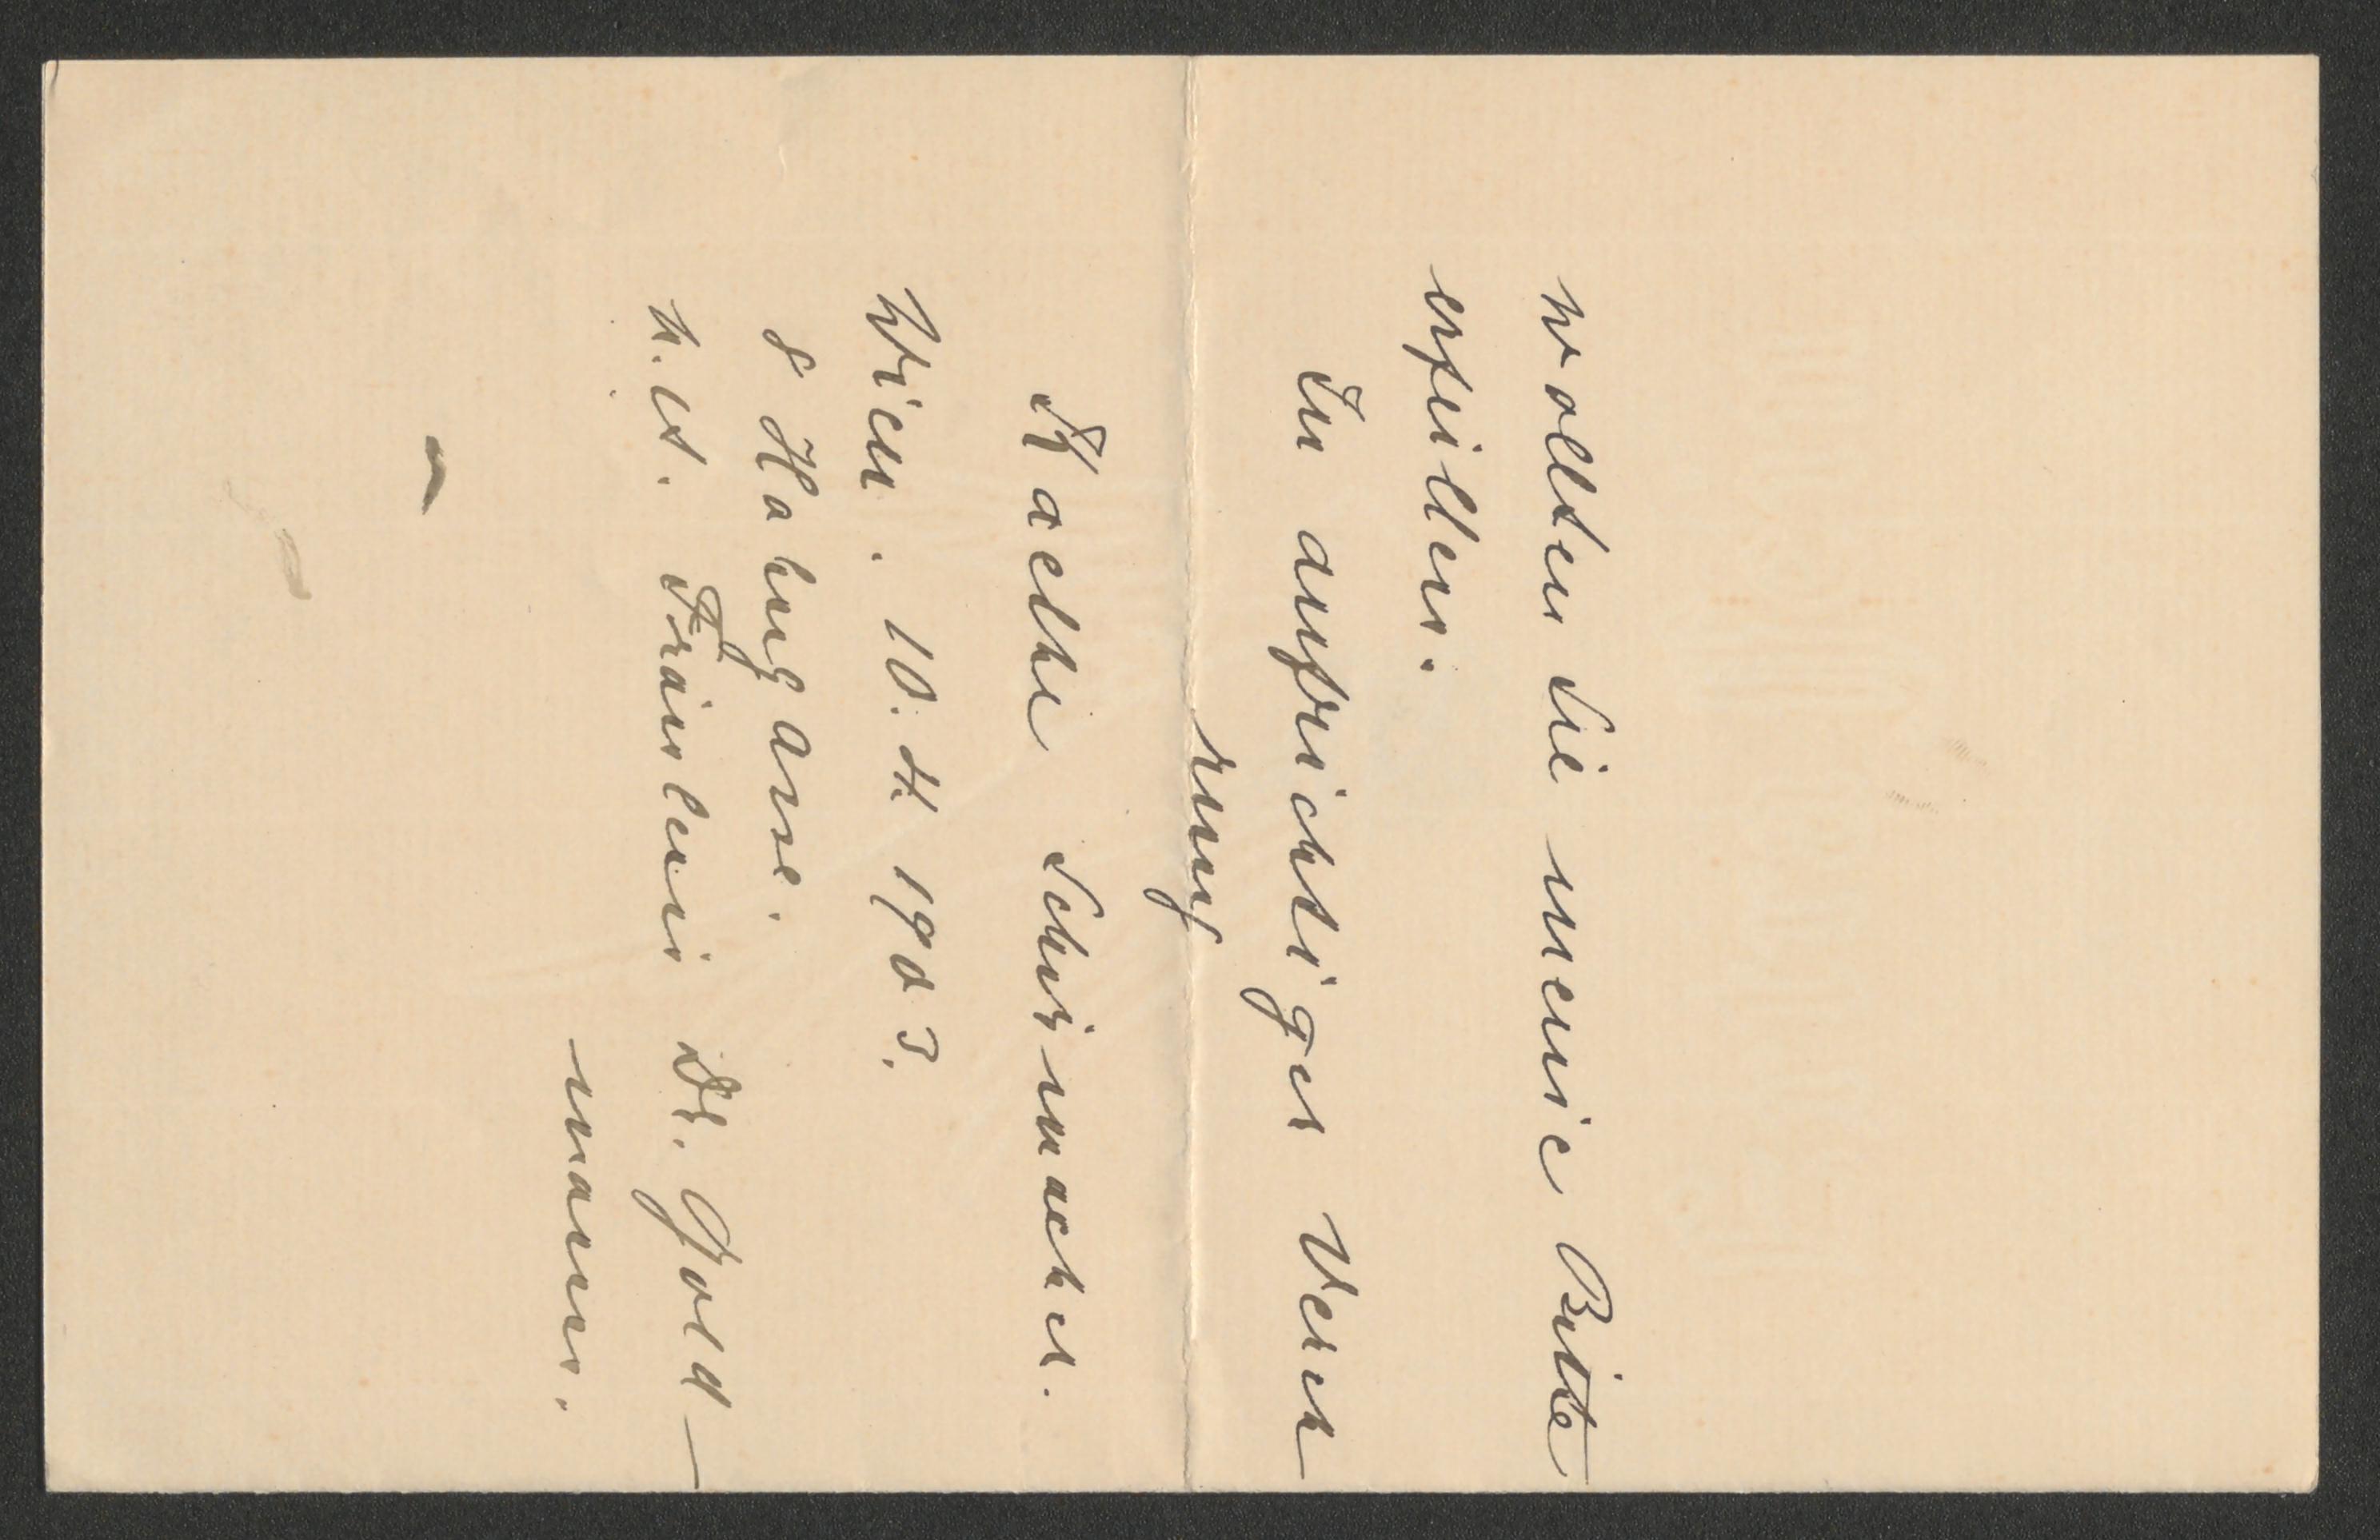 wollten Sie meine Bitte
erfüllen.
In aufrichtiger Vereh
rung
Kaethe Schirmacher.
Wien. 10. 4. 1903.
8 Hahngasse.
n. A. Fräulein Dr. Gold-
mann.